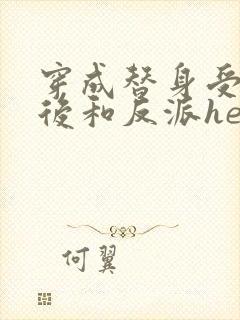 穿成替身受
後和反派he
何翼